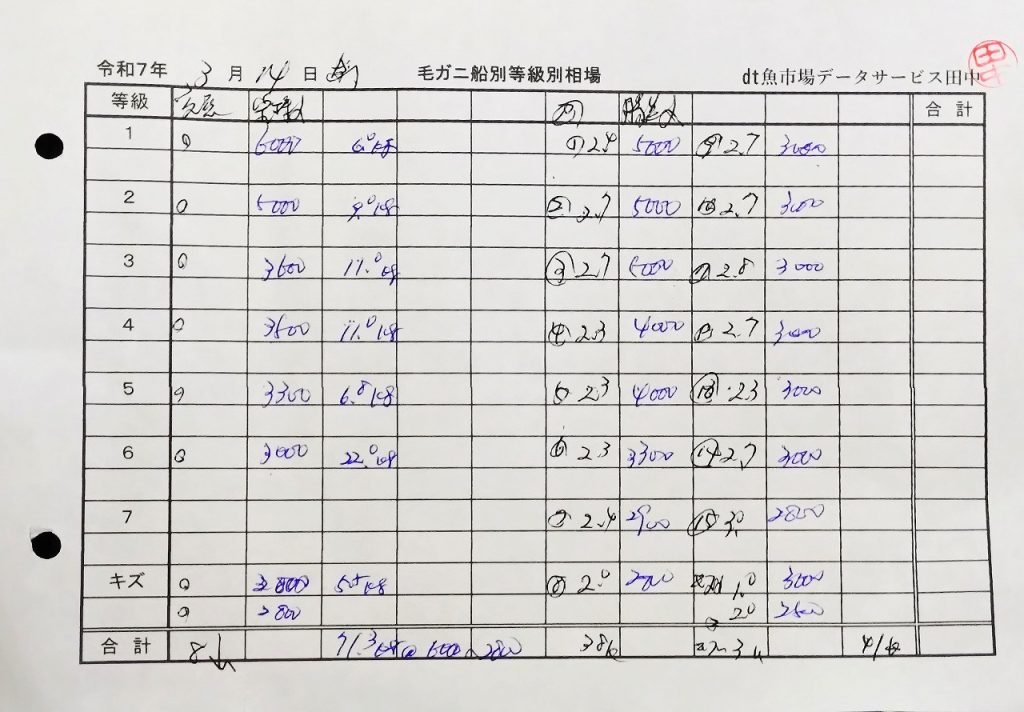 令和7年 3月 14日 毛ガニ船別等級別相場 dt魚市場データサービス田中
田
等級 合計
1 0 6000 6.0K8 ① 2.4 5000 ⑨ 2.7 3000
2 0 5000 9.0K8 ② 2.7 5000 ⑩ 2.7 3000
3 0 3600 11.0K8 ③ 2.7 5000 2.8 3000
4 0 3500 11.0K8 ④ 2.3 4000 2.7 3000
5 0 3300 6.8K8 2.3 4000 ⑬ 2.3 3000
6 0 3000 22.0K8 ⑥ 2.3 3300 ⑭ 2.7 3000
7 2.4 2900 ⑮ 3.0 2800
キズ 0 5.5K8 2.0 1.0 3000
0 2800 2.0 2500
合計 71.3K8 2800 38